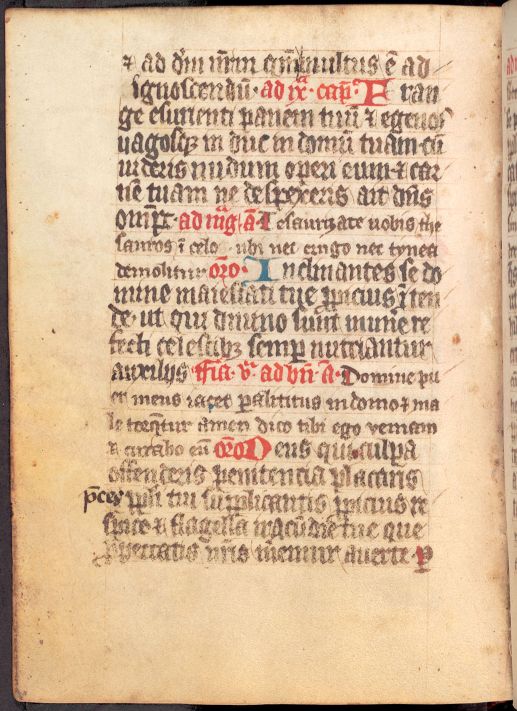 ⁊ ad dn̄m nr̄m qm̄ multus ē ad
ignoscendū· ad ix· cap̄· Fran
ge esurienti panem tuū ⁊ egenos
uagosqꝫ in duc in domū tuam cū
uideris nudum operi eum ⁊ car
nē tuam ne despexeris ait dn̄s
om̄ps· ad maḡ· a᷑· Tesaurizate uobis the
sauros ī celo ubi nec erugo nec tynea
demolitur or̄o· Inclinantes se do
mine maiestati tue ꝓpicius ītten
de· ut qui diuino sunt munere re
fecti celestibꝫ semꝑ nutriantur
auxilijs fr̄ia· vi᷑· ad bn̄· a᷑· Domine pu
er meus iacet ꝑaliticus in domo ⁊ ma
le torq̄tur amen dico tibi ego veniam
⁊ curabo eū or̄o Deus qui culpa
offenderis penitencia placaris
p̄ces ppl̄i tui supplicantis ꝓpicius re
spice ⁊ flagella iracūdie tue que
ꝓ peccatis nr̄is meremur auerte· ꝑ